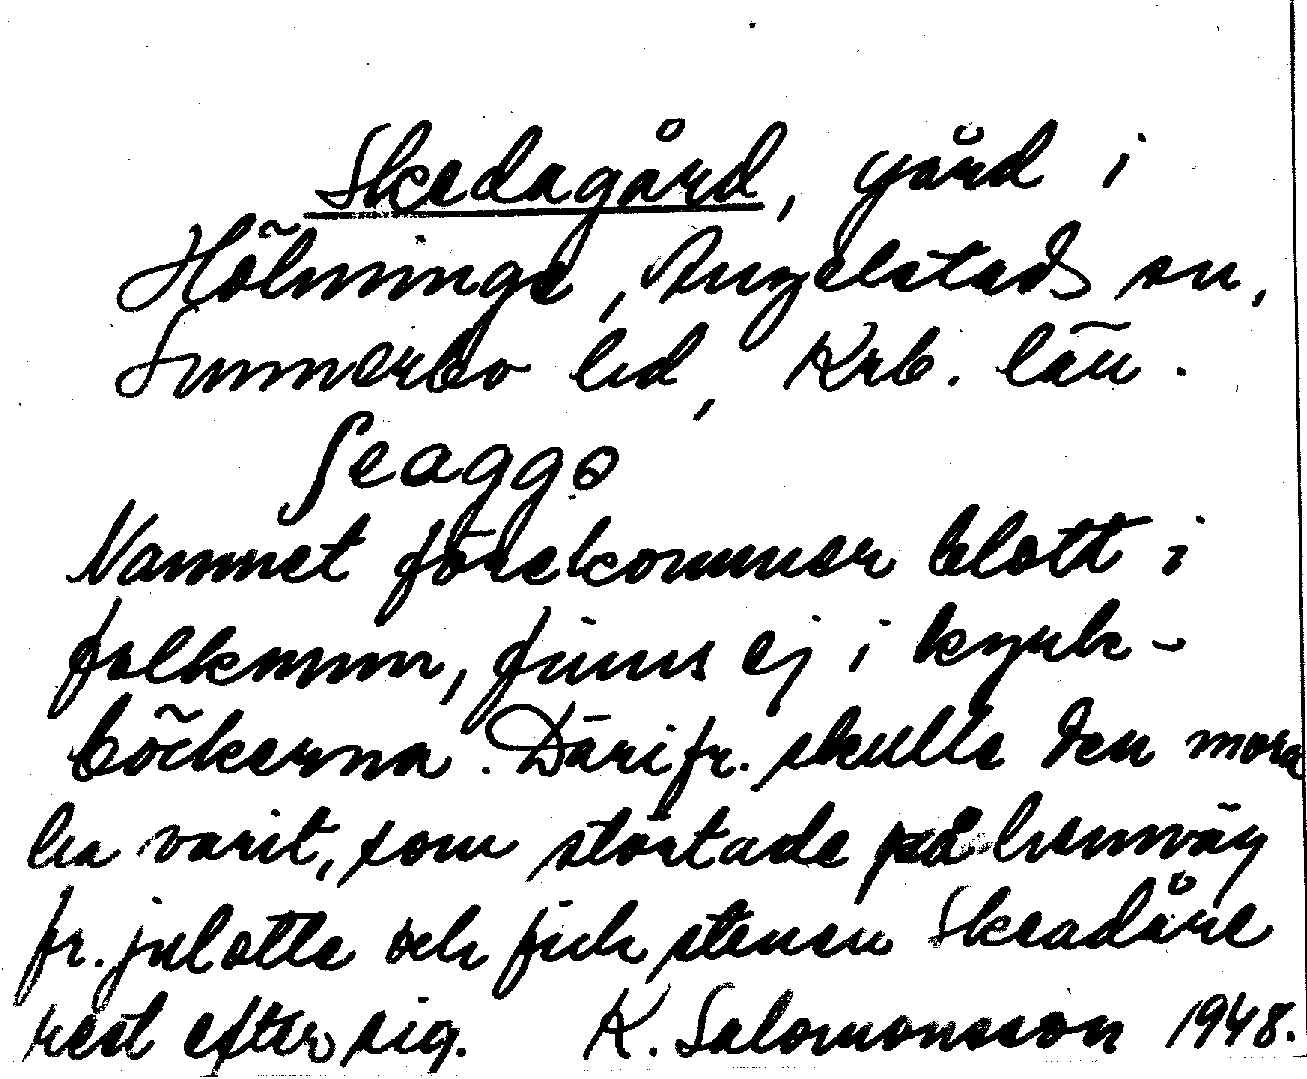 Skedagård, gård i
Hölminge, Angelstads sn,
Sunnerbo hd, Krb. län.
ſeaggo
Namnet förekommer blott i
folkmun, finns ej i kyrk-
böckerna. Därifr. skulle den mora
ha varit, som störtade på hemväg
fr. julotta och fick stenen Skeadåre
rest efter sig. K. Salomonsson 1948.